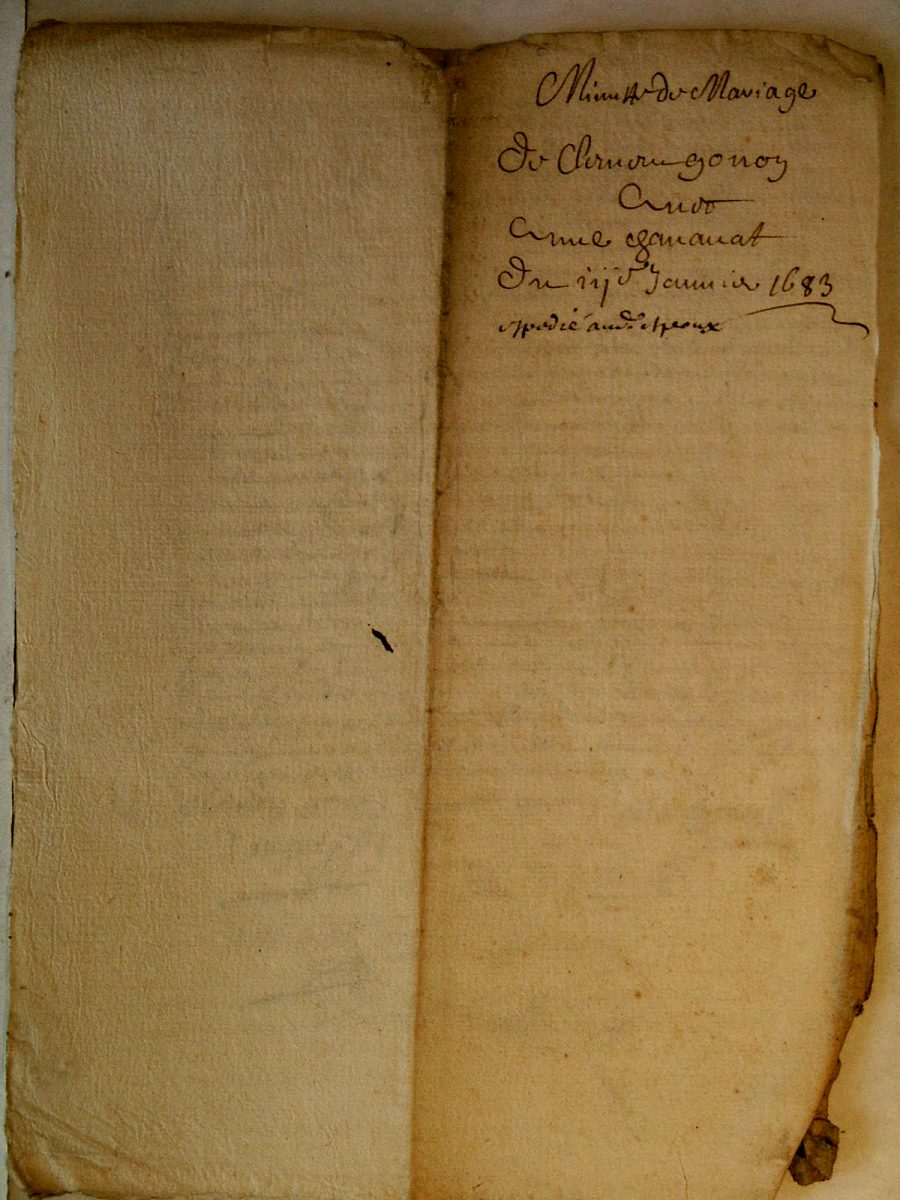 Minutte de Mariage
De Clement gonon
Avec
Anne
Du iije Januier 1683
expedié aud. espoux